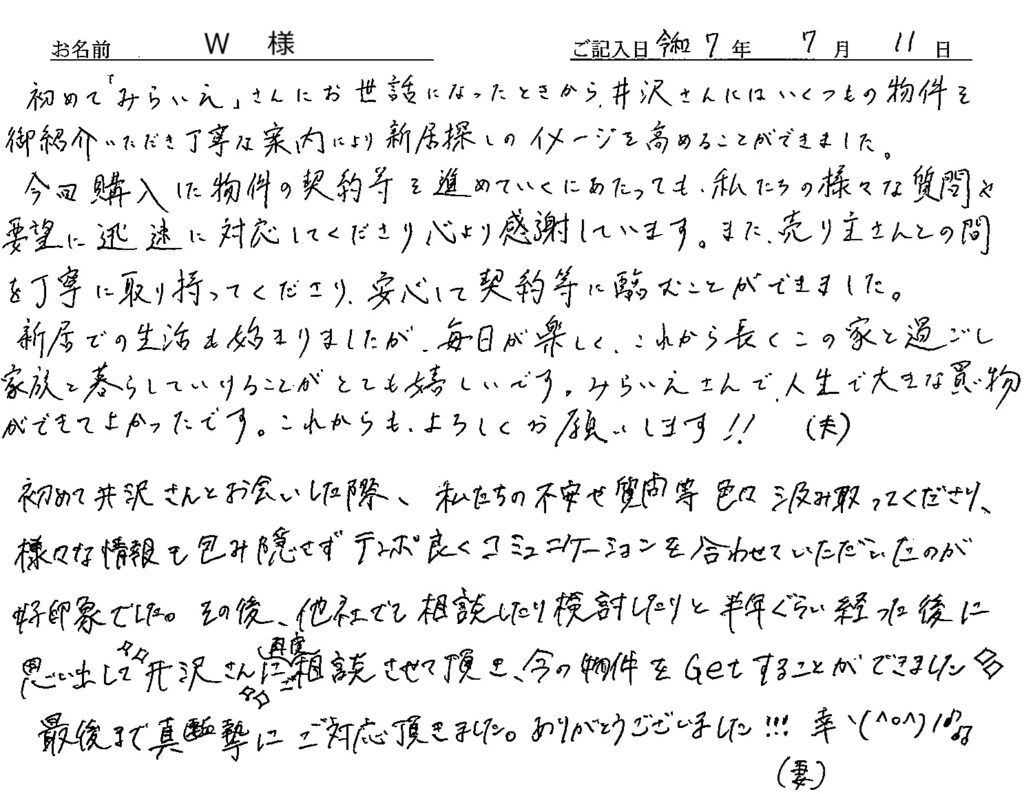 お名前 W 様 ご記入日 令和7年 7月 11日
初めて「みらいえ」さんにお世話になったときから、井沢さんにはいくつもの物件を
御紹介いただき丁寧な案内により新居探しのイメージを高めることができました。
今回購入した物件の契約等を進めていくにあたっても、私たちの様々な質問や
要望に迅速に対応してくださり心より感謝しています。また、売り主さんとの間
を丁寧に取り持ってくださり、安心して契約等に臨むことができました。
新居での生活も始まりましたが、毎日が楽しく、これから長くこの家と過ごし
家族と暮らしていけることがとても嬉しいです。みらいえさんで、人生で大きな買い物
ができてよかったです。これからも、よろしくお願いします!! (夫)
初めて井沢さんとお会いした際、私たちの不安や質問等色々汲み取ってくださり、
様々な情報も包み隠さずテンポ良くコミュニケーションを合わせていただいたのが
好印象でした。その後、他社でも相談したり検討したりと半年ぐらい経った後に
思い出して井沢さんに再度ご相談させて頂き、今の物件をGetすることができました
最後まで真摯にご対応頂きました。ありがとうございました!!! 幸ヽ(^o^)ノ♪♪
(妻)